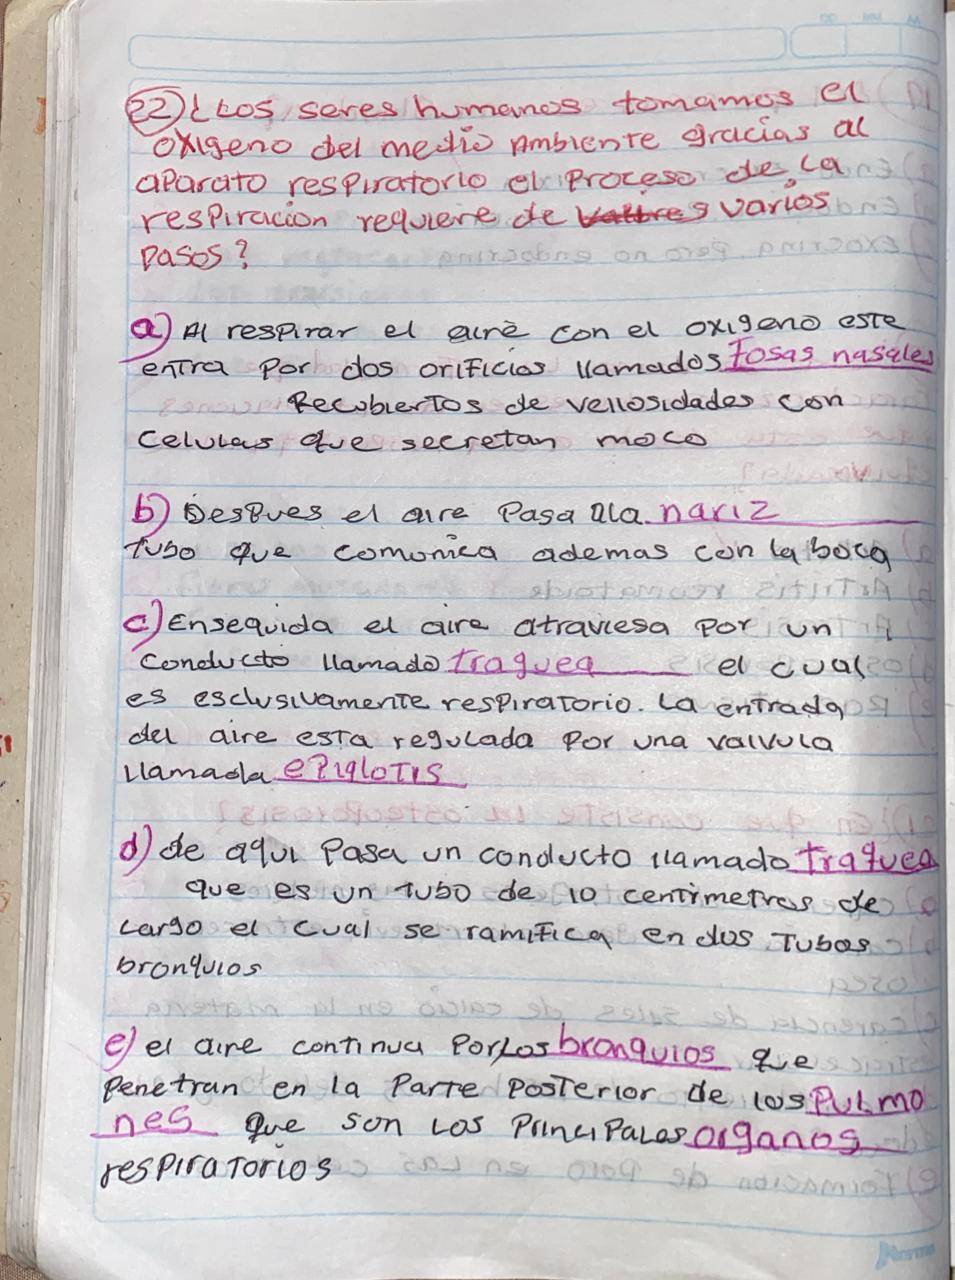 22) ¿Los seres humanos tomamos el
oxigeno del medio Ambiente gracias al
aparato respiratorio el proceso de la
respiracion requiere de varios
pasos?
a) Al respirar el aire con el oxigeno este
entra por dos orificios llamados fosas nasales
Recobiertos de vellosidades con
celulas que secretan moco
b) Despues el aire pasa ala nariz
Tubo que comonica ademas con la boca
c) Enseguida el aire atraviesa por un
conducto llamado traguea el cual
es esclusivamente respiratorio. La entrada
del aire esta regulada por una valvula
llamada epiglotis
d) de aqui pasa un conducto llamado traquea
que es un tubo de 10 centimetros de
largo el cual se ramifica en dos Tubos
bronquios
e) el aire continua por los bronquios que
penetran en la parte posterior de los Pulmo
nes que son los principales organos
respiratorios
Norma